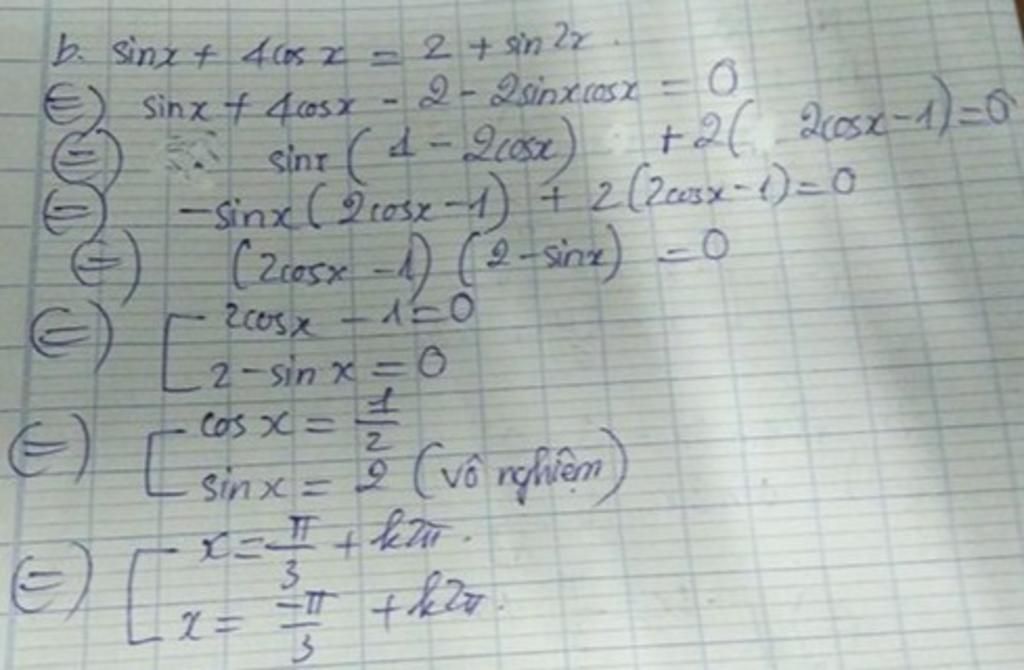 b. sinx + 4cos x = 2 + sin2x.
⇔ sinx + 4cosx - 2 - 2sinxcosx = 0
⇔ sinx (1 - 2cosx) + 2( 2cosx - 1) = 0
⇔ -sinx (2cosx - 1) + 2(2cosx - 1) = 0
⇔ (2cosx - 1) (2 - sinx) = 0
⇔ [ 2cosx - 1 = 0
2 - sin x = 0
⇔ [ cos x = 1/2
sin x = 2 (vô nghiệm)
⇔ [ x = π/3 + k2π.
x = -π/3 + k2π.